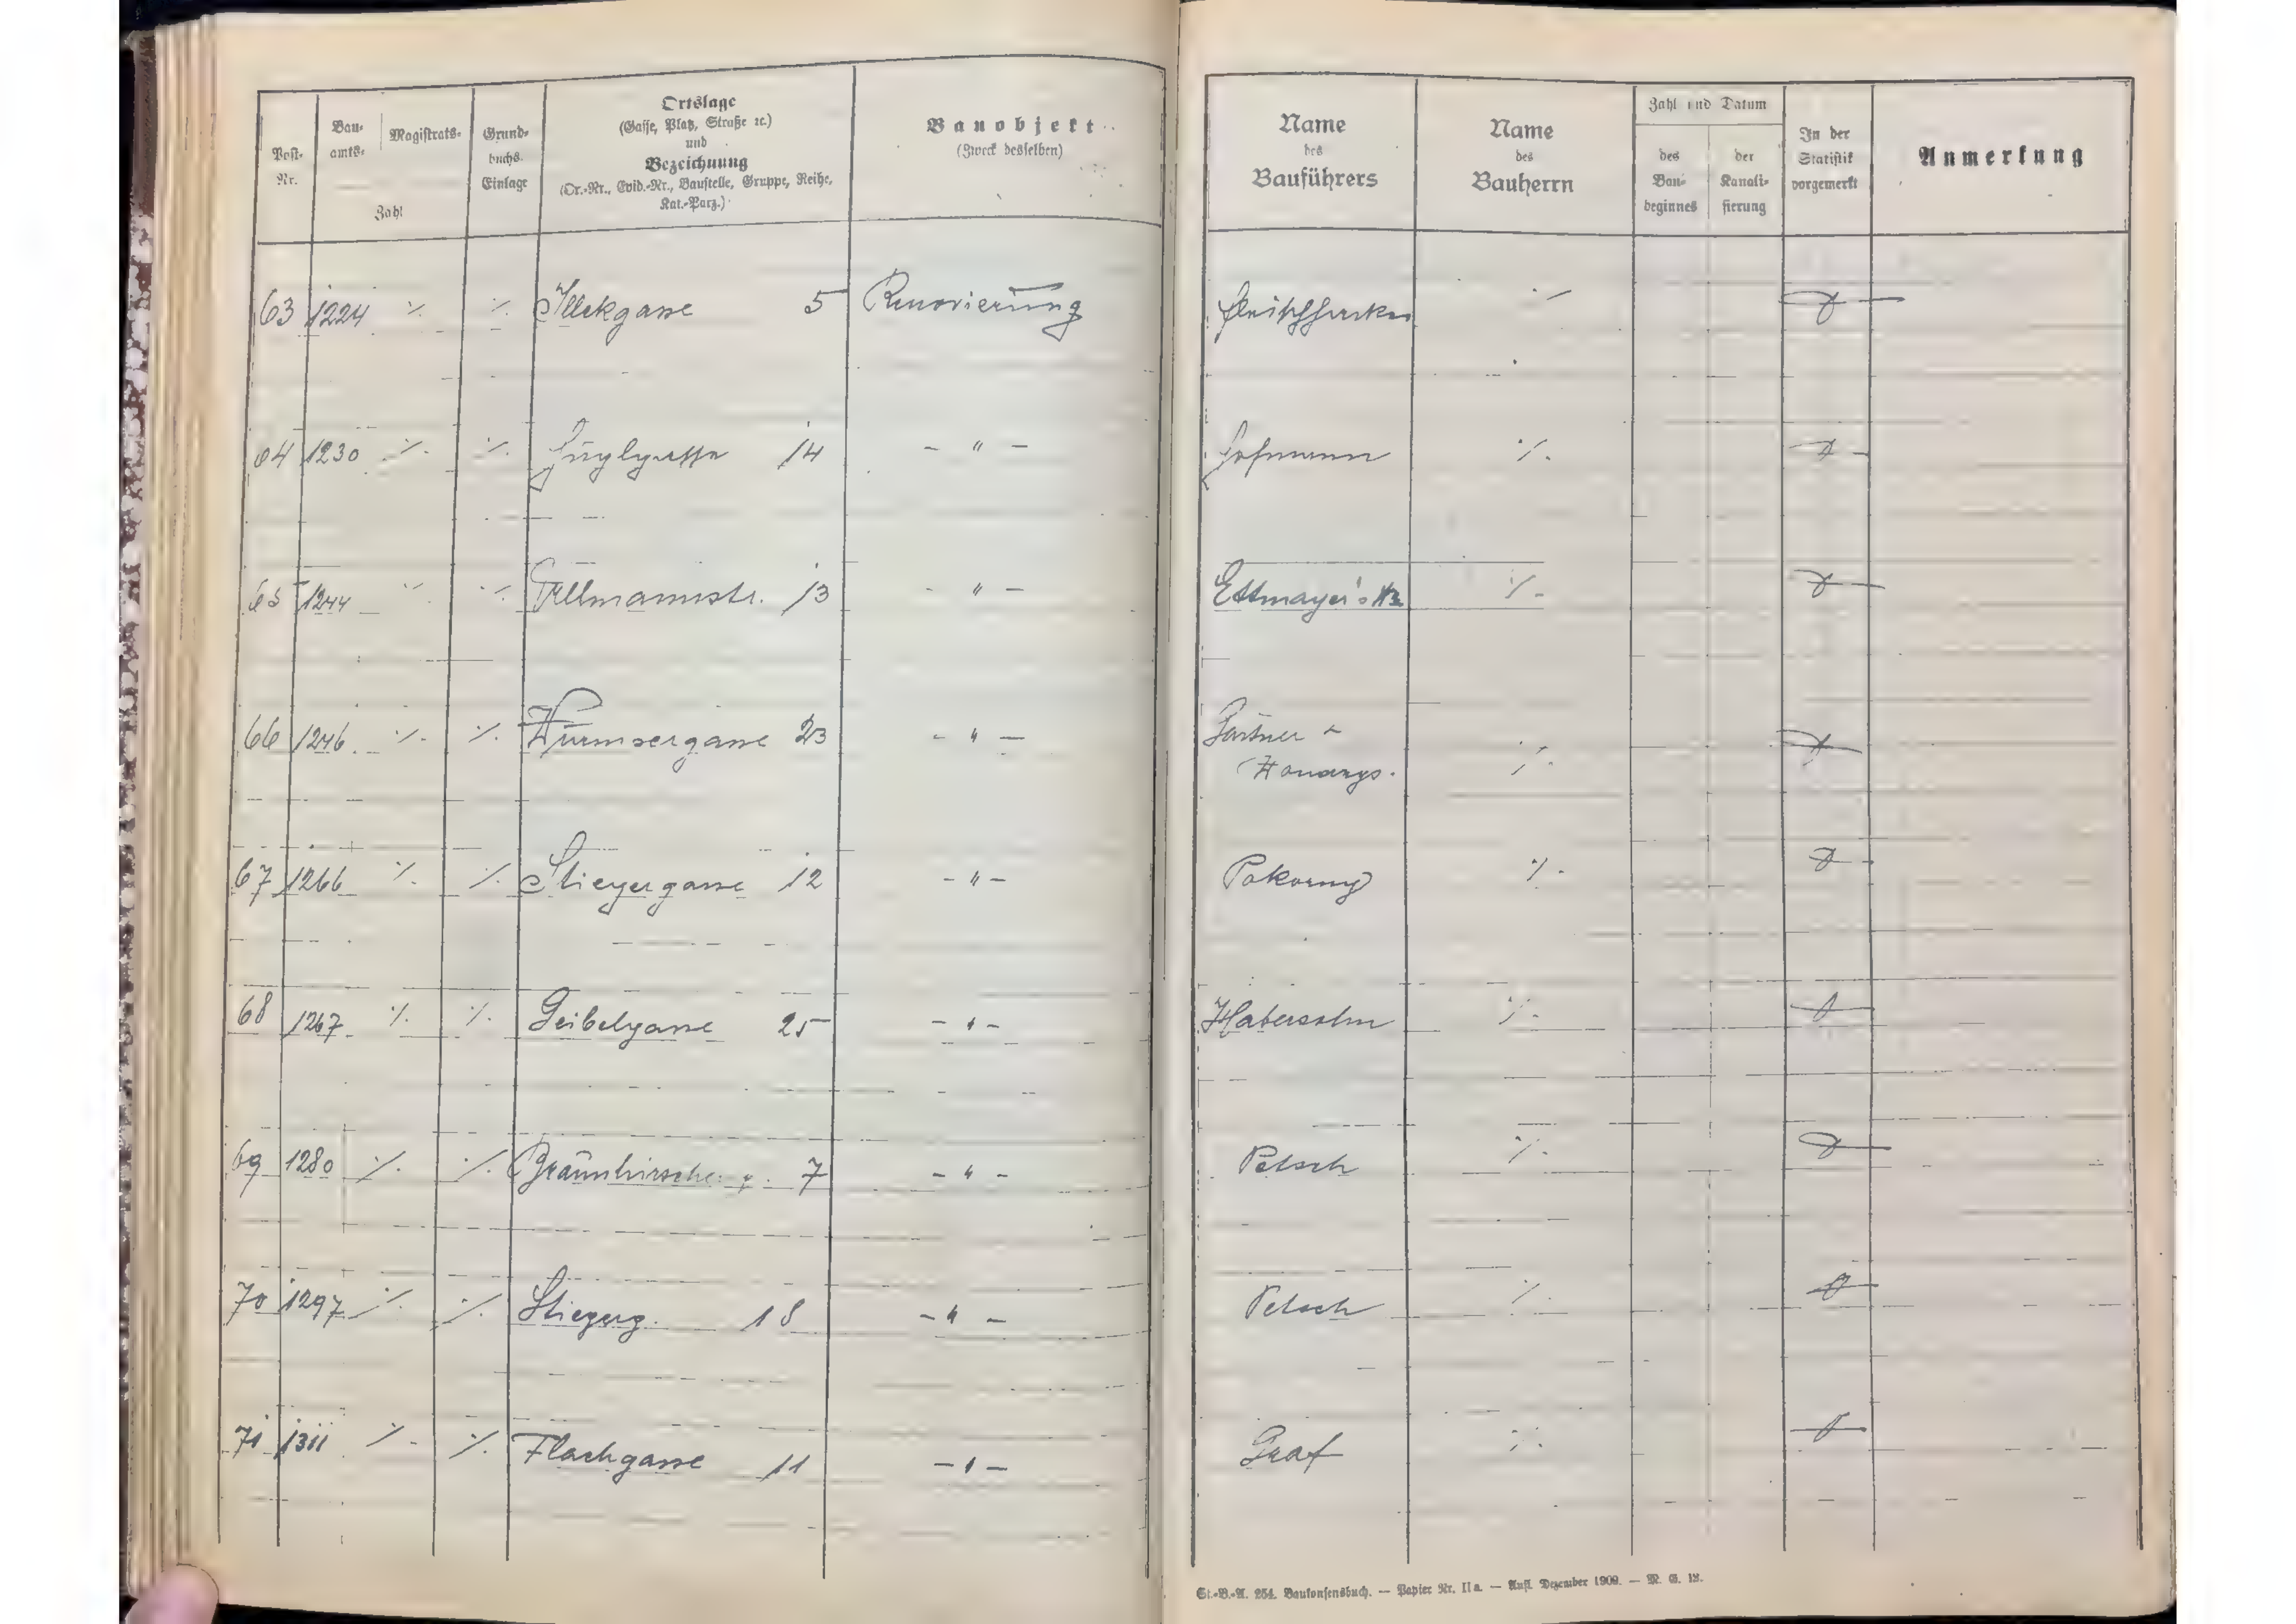 Post-Nr.
Bauamts-
Magistrats-
Zahl
Grundbuchs-Einlage
Ortslage
(Gasse, Platz, Straße 2c.)
und
Bezeichnung
(Or.-Nr., Evid.-Nr., Baustelle, Gruppe, Reihe,
Kat.-Parz.)
Bauobjekt
(Zweck desselben)
Name
des
Bauführers
Name
des
Bauherrn
Zahl und Datum
des
Bau-
beginnes
der
Kanali-
sierung
In der
Statistik
vorgemerkt
Anmerkung
63 1224 ⁒ ⁒ Illekgasse 5 Renovierung ⁒
64 1230 ⁒ ⁒ 14 - " - Hofmann ⁒
65 1244 ⁒ ⁒ Tellmannstr. 13 - " - Ettmayer's ⁒
66 1246 ⁒ ⁒ Wurmsergasse 23 - " - Gärtner ⁒
67 1266 ⁒ ⁒ Stiegergasse 12 - " - Pokorny ⁒
68 1267 ⁒ ⁒ Geibelgasse 25 - " - Habersohn ⁒
69 1280 ⁒ ⁒ Braunhirscheng. 7 - " - Petsch ⁒
70 1297 ⁒ ⁒ Stiegerg. 18 - " - Petsch ⁒
71 1311 ⁒ ⁒ Flachgasse 11 - " - Graf ⁒
St.-B.-A. 254. Baukonsensbuch. — Papier Nr. IIa. — Aufl. Dezember 1909. — M. G. 12.